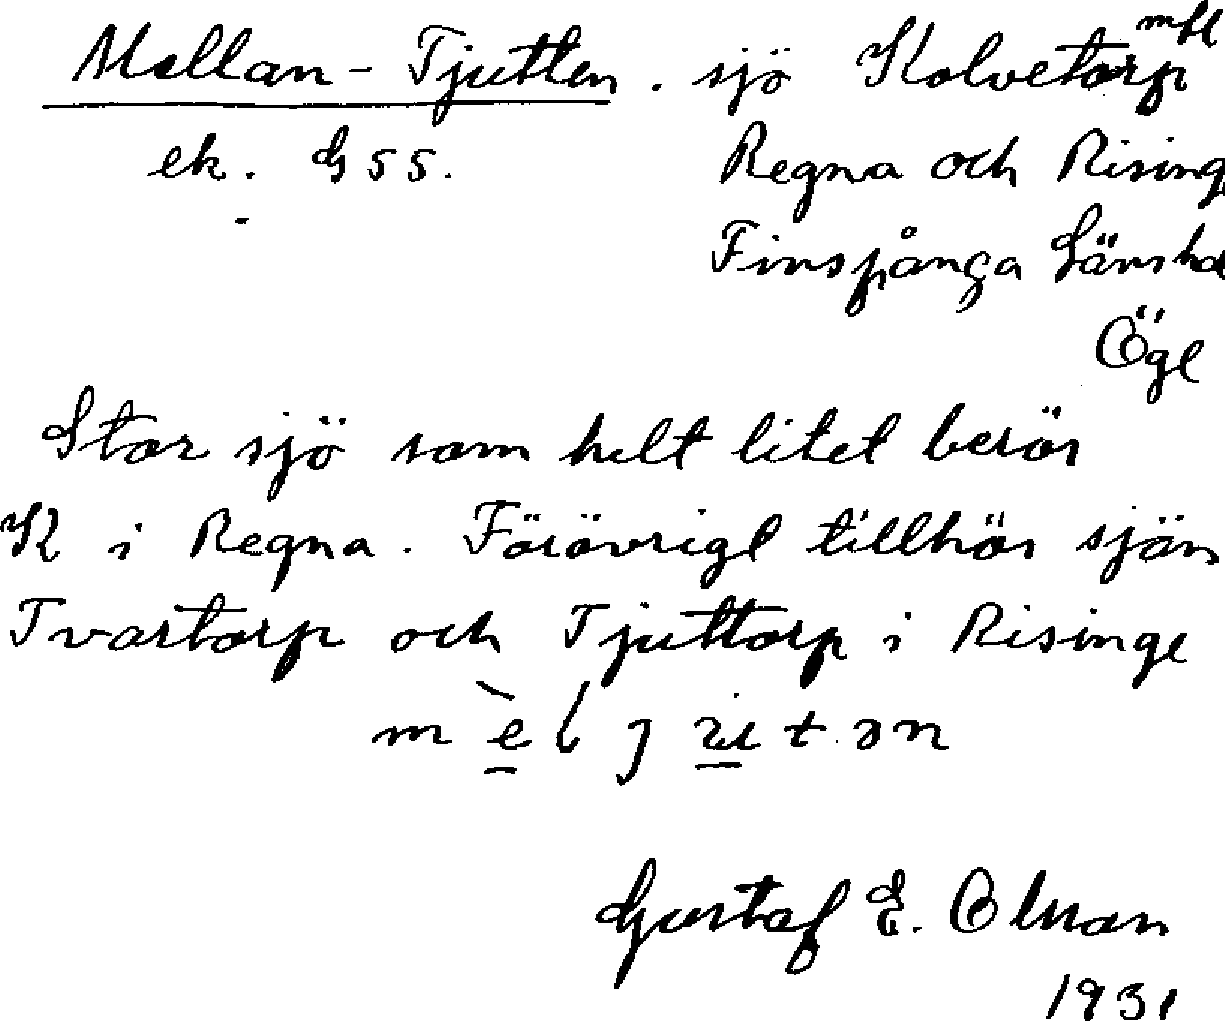 Mellan-Tjutten. sjö Kolvetorp mfl
ek. G 55. Regna och Rising
Finspånga Länshä
Ögl
Stor sjö som helt litet berör
K i Regna. Förövrigt tillhör sjön
Tvartorp och Tjuttorp i Risinge
Gustaf E. Olman
1931